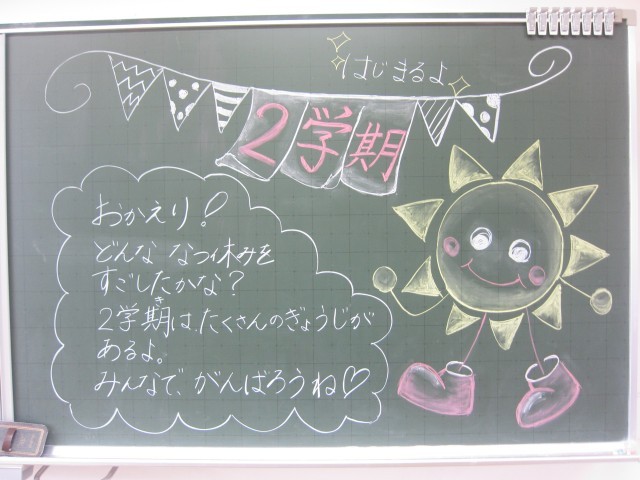 はじまるよ
2学期
おかえり!
どんな なつ休みを
すごしたかな?
き
2学期は、たくさんのぎょうじが
あるよ。
みんなで、がんばろうね♡